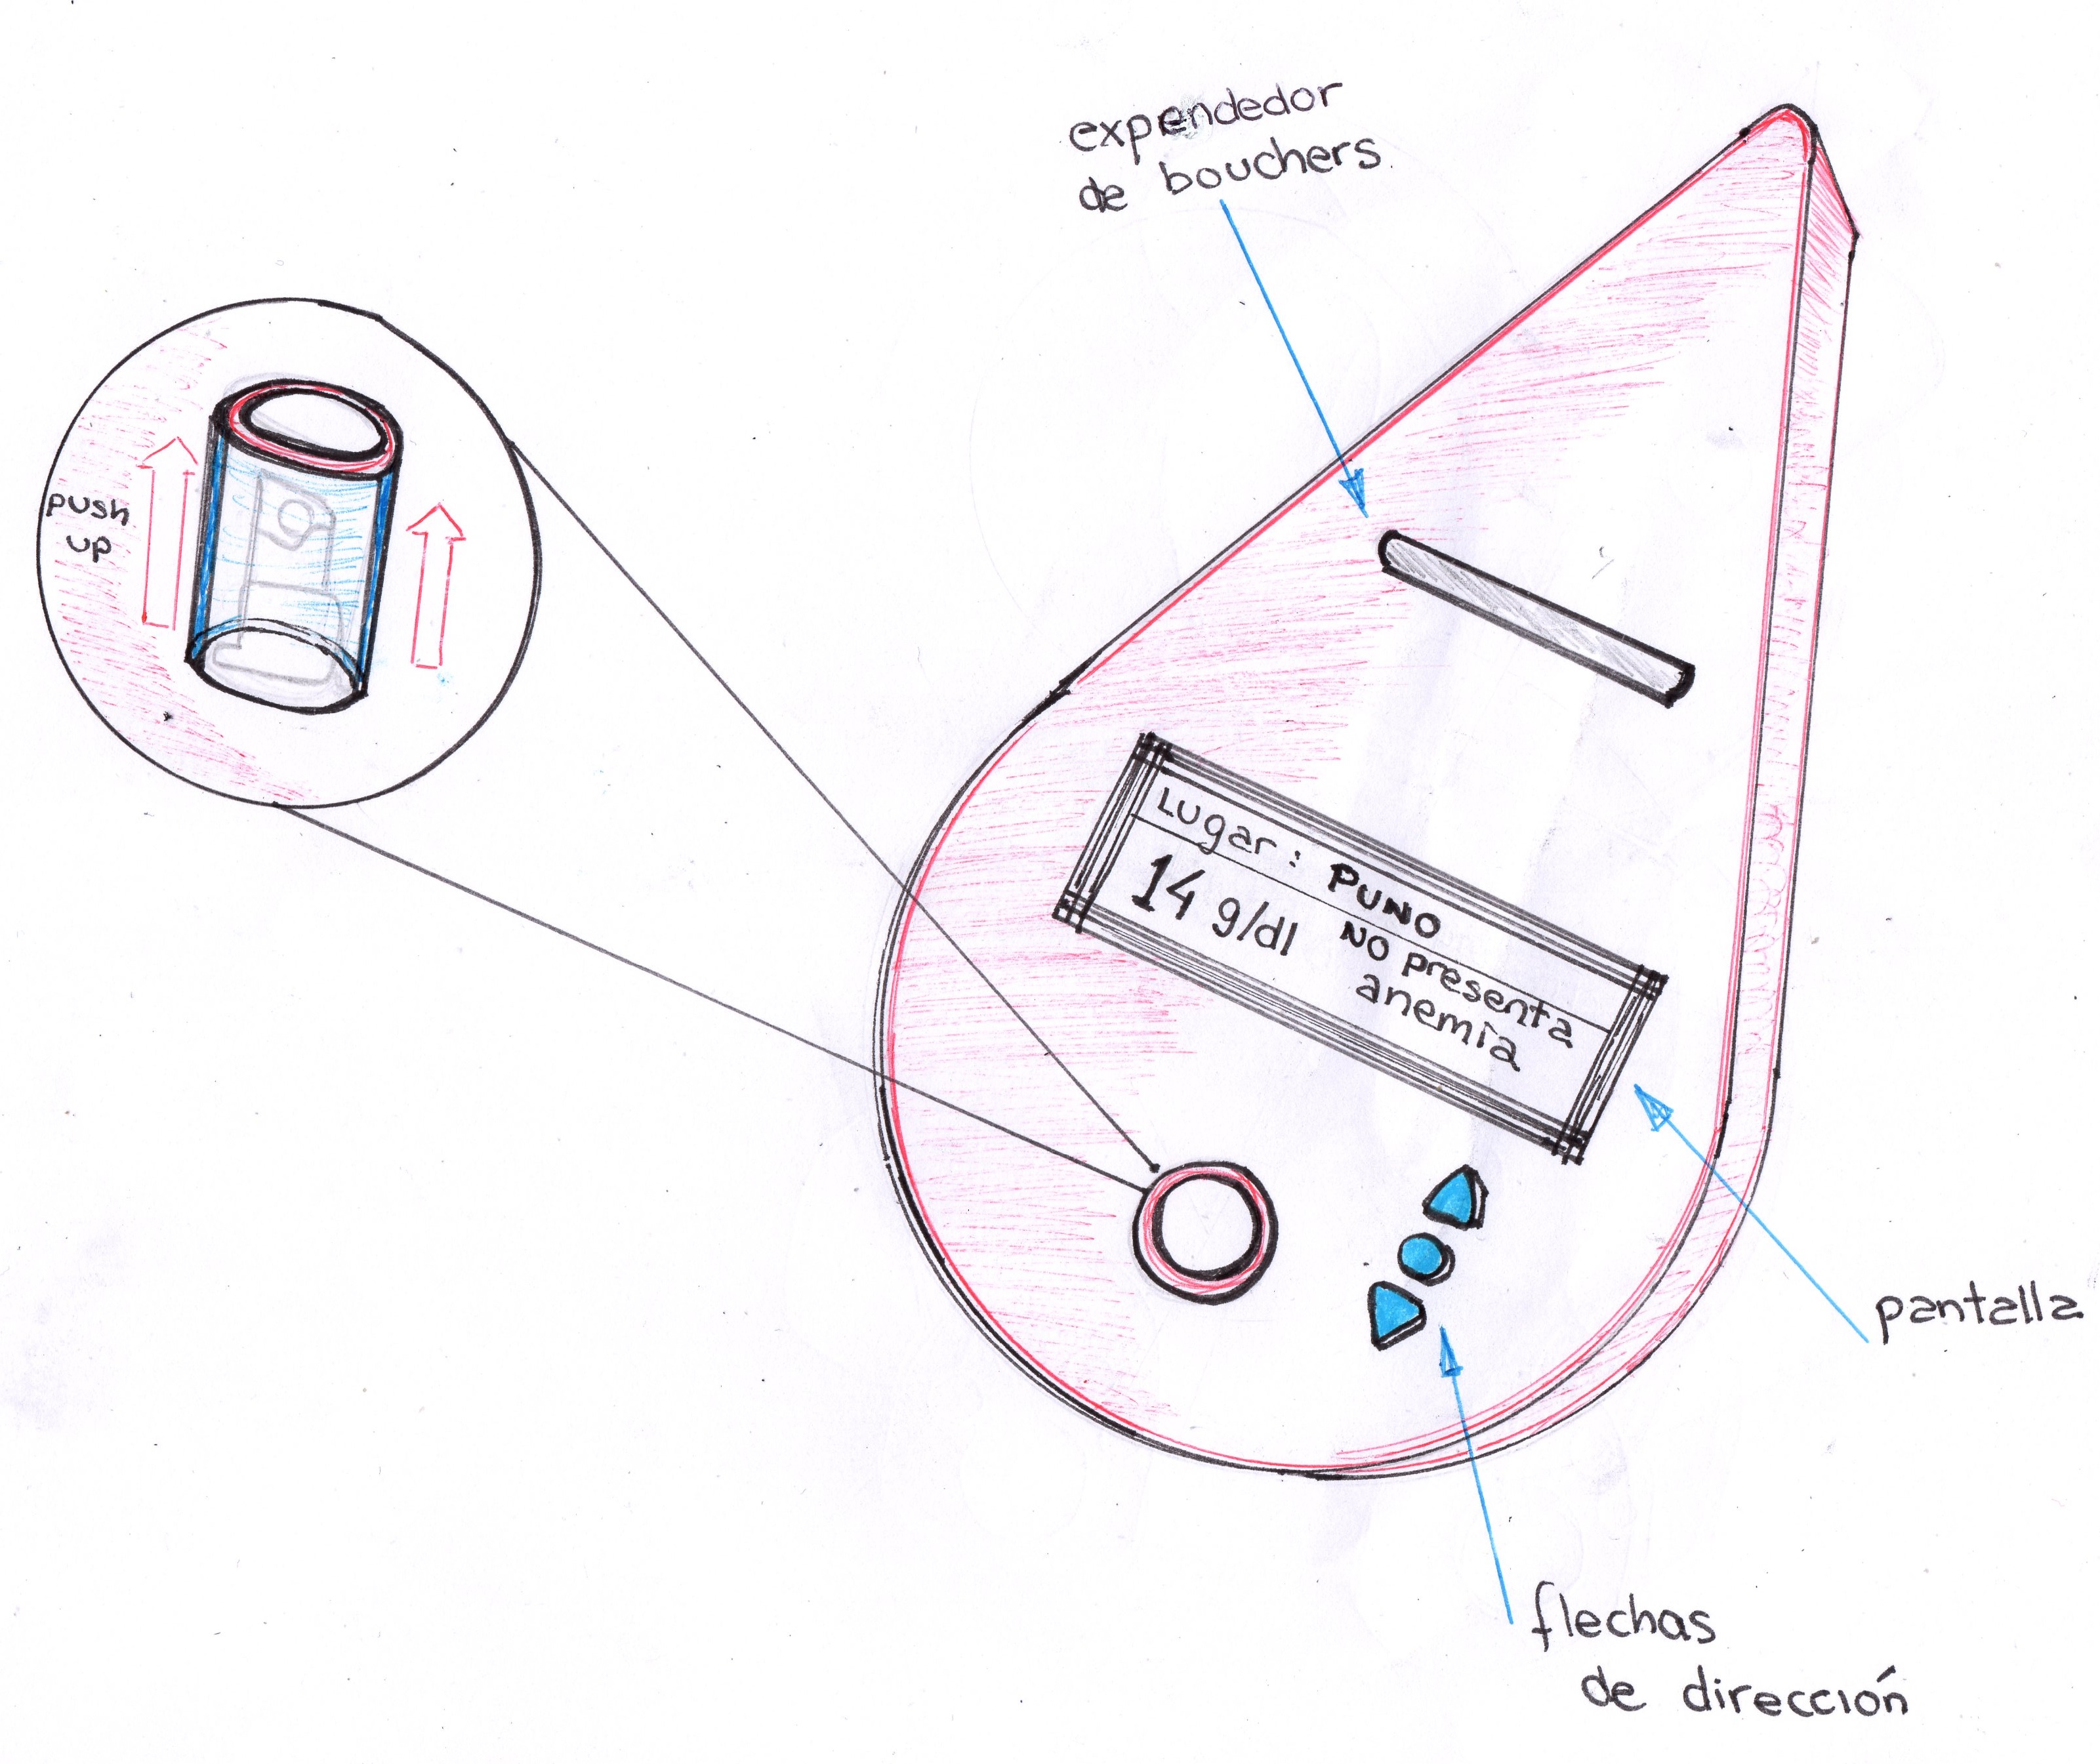 expendedor
de bouchers.
push
up
Lugar: PUNO
14 g/dl NO presenta
anemia
pantalla
flechas
de dirección